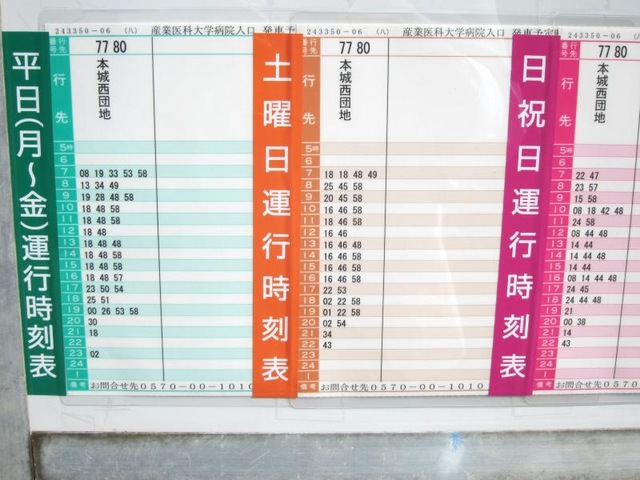 平日(月～金)運行時刻表
243350-06 (八) 産業医科大学病院入口 発車予定
行先番号 77 80
行先 本城西団地
5時
6
7 08 19 33 53 58
8 13 34 49
9 19 28 48 58
10 18 48 58
11 18 48 58
12 18 48
13 18 48 48
14 18 48 58
15 18 48 58
16 18 48 57
17 23 50 54
18 25 51
19 00 26 53 58
20 30
21 18
22
23 02
24
1
備考 お問合せ先 0570-00-1010
土曜日運行時刻表
243350-06 (八) 産業医科大学病院入口 発車予定
行先番号 77 80
行先 本城西団地
5時
6
7 18 18 48 49
8 25 45 58
9 20 45 58
10 16 46 58
11 18 46 58
12 16 46
13 16 46 48
14 16 46 58
15 16 46 58
16 16 46 58
17 22 53
18 02 22 58
19 01 22 58
20 02 54
21 34
22 43
23
24
1
備考 お問合せ先 0570-00-1010
日祝日運行時刻表
243350-06
行先番号 77 80
行先 本城西団地
5時
6
7 22 47
8 23 57
9 15 58
10 08 18 42 48
11 24 58
12 08 44 48
13 14 44
14 14 44 48
15 14 44
16 08 14 44 48
17 24 45
18 24 44 48
19 21
20 00 38
21 14
22 43
23
24
1
備考 お問合せ先 0570